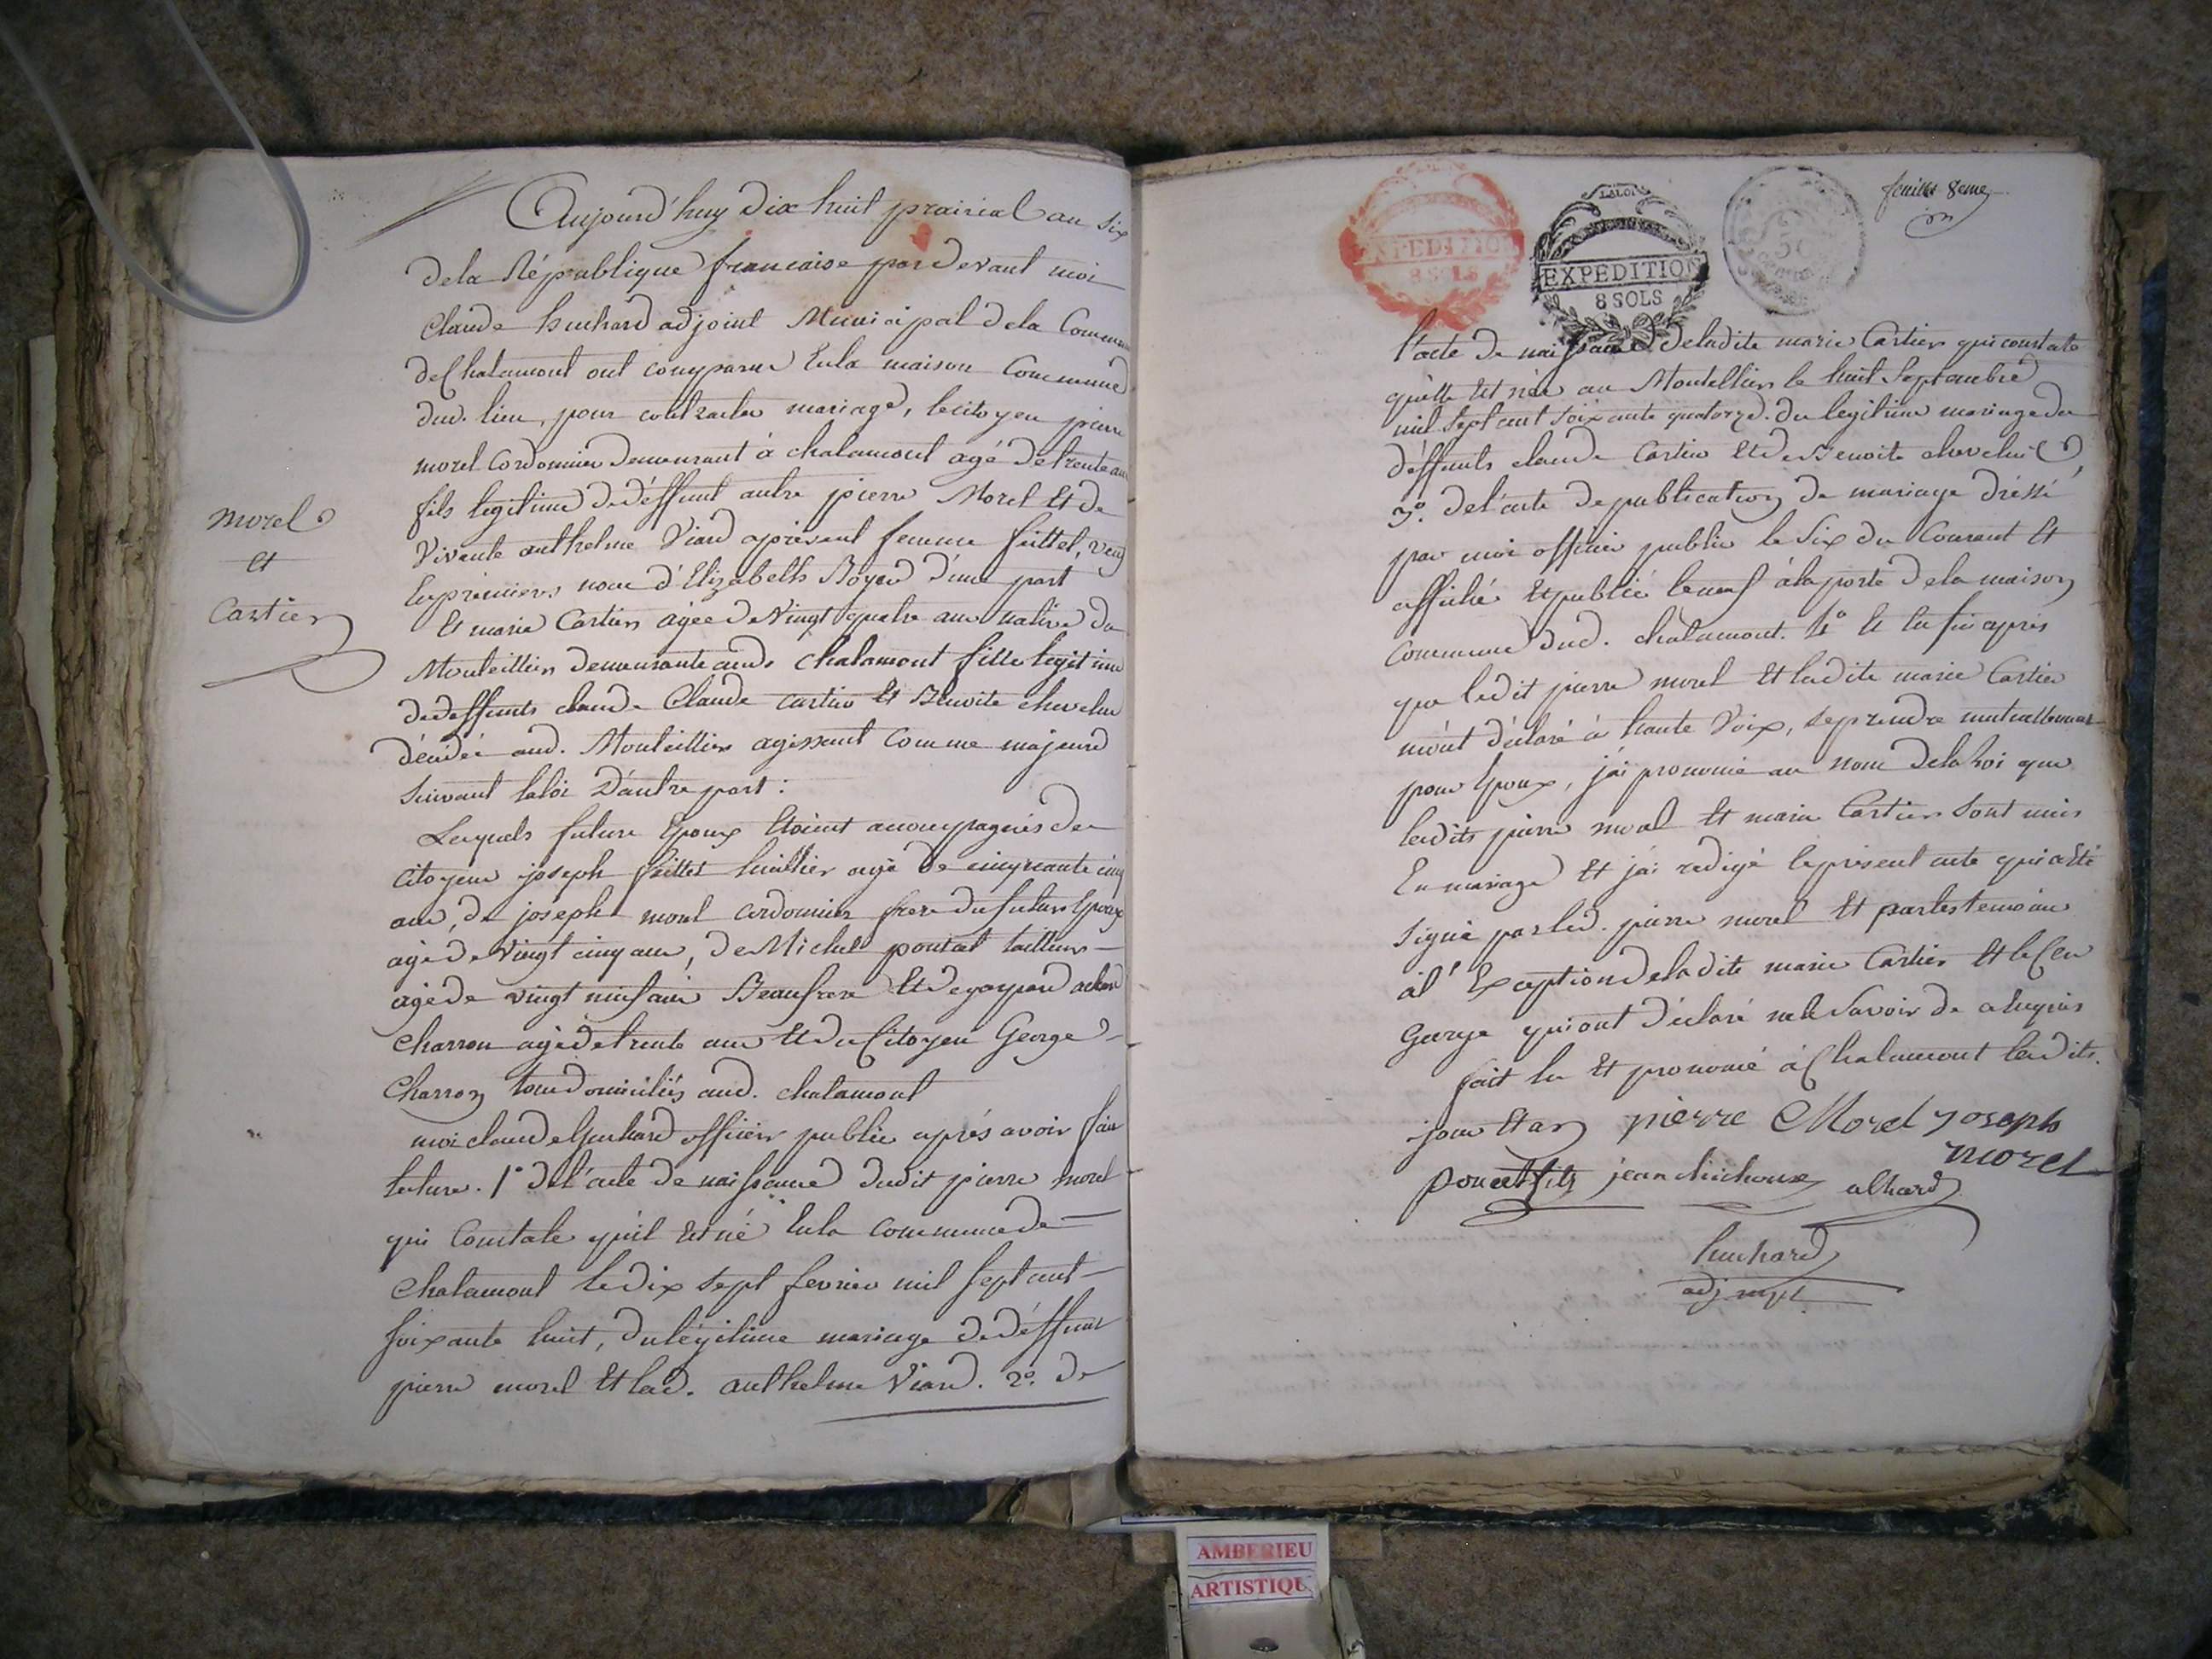 Aujourd'huy dix huit prairial an six
dela République francaise pardevant moi
Claude huchard adjoint Municipal dela Commune
de Chalamont ont comparu Enla maison Commune
dud. lieu, pour contracter mariage, le citoyen pierre
morel Cordonnier demeurant à chalamont agé de trente ans
fils legitime de déffunt autre pierre Morel Et de
Vivante anthelme Viard apresent femme feillet, veuf
En premieres noce d'Elizabeth Boyer d'une part
Et marie Cartier agée de Vingt quatre ans native du
Montellier demeurante aud. chalamont fille legitime
de deffunts claude Claude cartier Et Benoite chevelu
décédée aud. Montellier agissant Comme majeure
suivant laloi D'autre part :
Lesquels futurs Epoux Etoient accompagnés de
citoyens joseph feillet huillier agé de cinquante cinq
ans, de joseph morel cordonnier frere du futur Epoux
agé de Vingt cinq ans, de Michel poncet tailleur
agé de vingt neuf ans Beaufrere Et de
Charron agé de trente ans Et du Citoyen George
Charron tous domiciliés aud. chalamont
moi claude huchard officier public après avoir fait
lecture. 1° de l'acte de naissance dudit pierre morel
qui Constate qu'il Est né Enla commune de
Chalamont le dix sept fevrier mil sept cent
soixante huit, du légitime mariage de déffunt
pierre morel Et lad. anthelme Viard. 2° de
morel
Et
Cartier
feuillet 8eme
EXPEDITION
8 SOLS
LA LOI
EXPEDITION
8 SOLS
l'acte de naissance deladite marie Cartier qui constate
qu'elle Est née au Montellier le huit septembre
mil sept cent soixante quatorze. du legitime mariage de
déffunts claude Cartier Et de Benoite chevelu
3°. de l'acte de publication de mariage dréssé
par moi officier public le six du Courant Et
affiché Et publié le neuf à la porte dela maison
Commune dud. chalamont. 4° Et Enfin après
que ledit pierre morel Et ladite marie Cartier
m'ont déclaré à haute Voix, se prendre mutuellement
pour Epoux, j'ai prononcé au nom dela loi que
lesdits pierre morel Et marie Cartier sont unis
En mariage Et j'ai redigé le présent acte qui a Eté
signé par led. pierre morel Et par les temoins
à l'Exception deladite marie Cartier Et le Cen
George qui ont déclaré ne le savoir de ce requis
fait lu Et prononcé à Chalamont lesdits.
jour Et an pierre Morel joseph
morel
poncet fils jean
huchard
adj mpl
AMBERIEU
ARTISTIQU